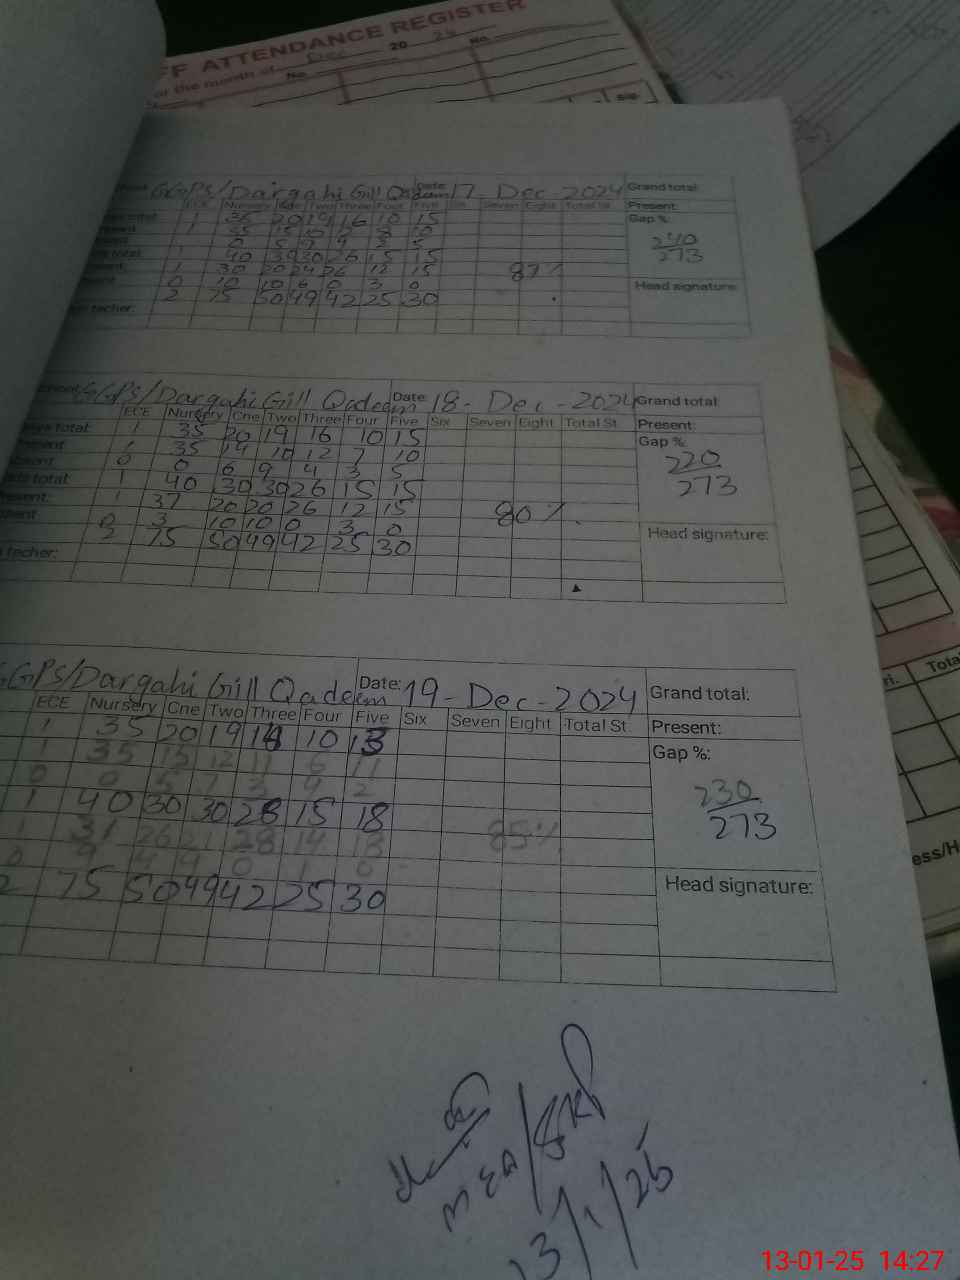 FF ATTENDANCE REGISTER
or the month of Dec 20 24 No.
No
GGPS/Dargahi Gill Qadeem Date: 17-Dec-2024 Grand total:
ECE Nursery One Two Three Four Five Six Seven Eight Total St. Present:
total 1 35 20 19 16 10 15 Gap %:
1 35 15 10 8 10 240
0 5 9 9 2 5 273
total 1 40 30 30 26 15 15
1 30 20 24 26 12 15 87%
0 10 10 6 0 3 0 Head signature:
2 75 50 49 42 25 30
techer:
GGPS/Dargahi Gill Qadeem Date: 18-Dec-2024 Grand total:
ECE Nursery One Two Three Four Five Six Seven Eight Total St. Present:
total: 1 35 20 19 16 10 15 Gap %:
1 35 14 10 12 7 10 220
0 0 6 9 4 3 5 273
total 1 40 30 30 26 15 15
1 37 20 20 26 12 15 80%.
0 3 10 10 0 3 0 Head signature:
2 75 50 49 42 25 30
techer:
GGPS/Dargahi Gill Qadeem Date: 19-Dec-2024 Grand total:
ECE Nursery One Two Three Four Five Six Seven Eight Total St. Present:
1 35 20 19 14 10 13 Gap %:
1 35 15 12 11 6 11 230
0 0 5 7 3 4 2 273
1 40 30 30 28 15 18
1 31 26 21 28 14 18 85%
0 9 4 9 0 1 0 Head signature:
2 75 50 49 42 25 30
Total
ess/H
MEA
13/1/25
13-01-25 14:27